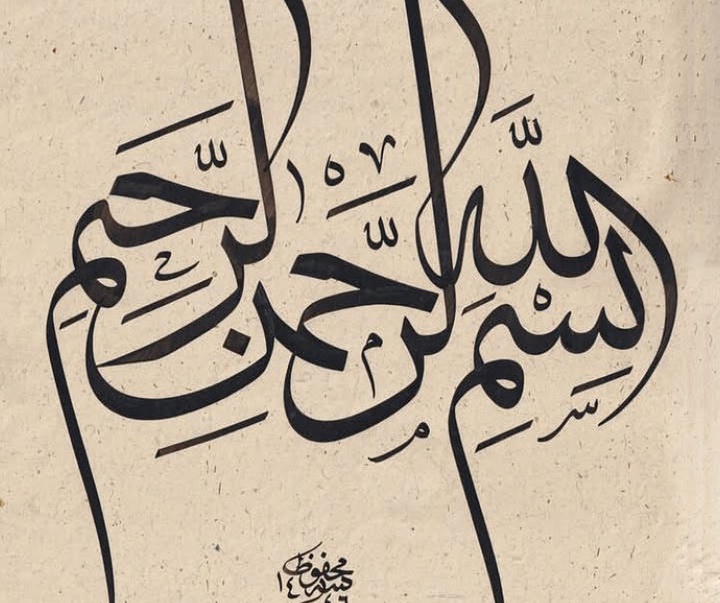 بِسْمِ اللّٰهِ الرَّحْمٰنِ الرَّحِيمِ
محفوظ